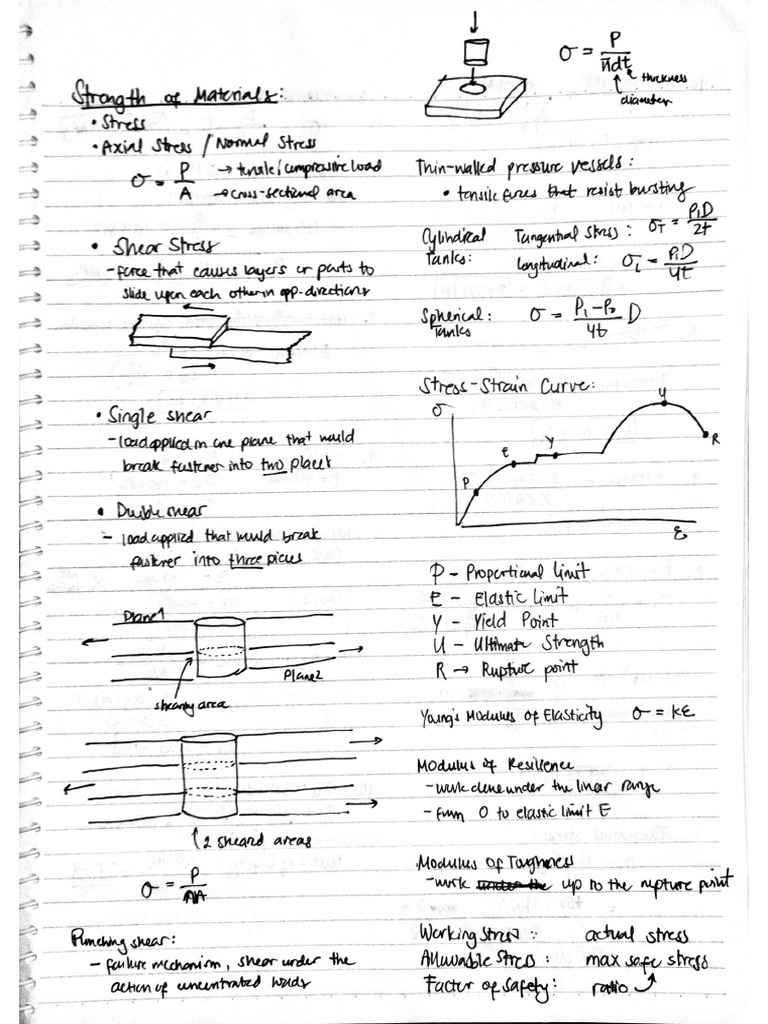 Strength of Materials:
• Stress
• Axial Stress / Normal Stress
σ = P/A → tensile/compressive load
→ cross-sectional area
• Shear Stress
- force that causes layers or parts to
slide upon each other in opp. directions
• Single shear
- load applied in one plane that would
break fastener into two places
• Double shear
- load applied that would break
fastener into three pieces
Plane 1
Plane 2
shearing area
2 sheard areas
σ = P/nA
Punching shear:
- failure mechanism, shear under the
action of concentrated loads
σ = P/πdt
thickness
diameter
Thin-walled pressure vessels:
• tensile forces that resist bursting
Cylindrical Tangential Stress: σT = PiD/2t
Tanks: Longitudinal: σL = PiD/4t
Spherical: σ = Pi - Po/4t D
Tanks
Stress-Strain Curve:
σ
P
E
Y
U
R
ε
P - Proportional limit
E - Elastic Limit
Y - Yield Point
U - Ultimate Strength
R → Rupture point
Young's Modulus of Elasticity σ = kε
Modulus of Resilience
- work done under the linear range
- from 0 to elastic limit E
Modulus of Toughness
- work under the up to the rupture point
Working stress: actual stress
Allowable Stress: max safe stress
Factor of safety: ratio